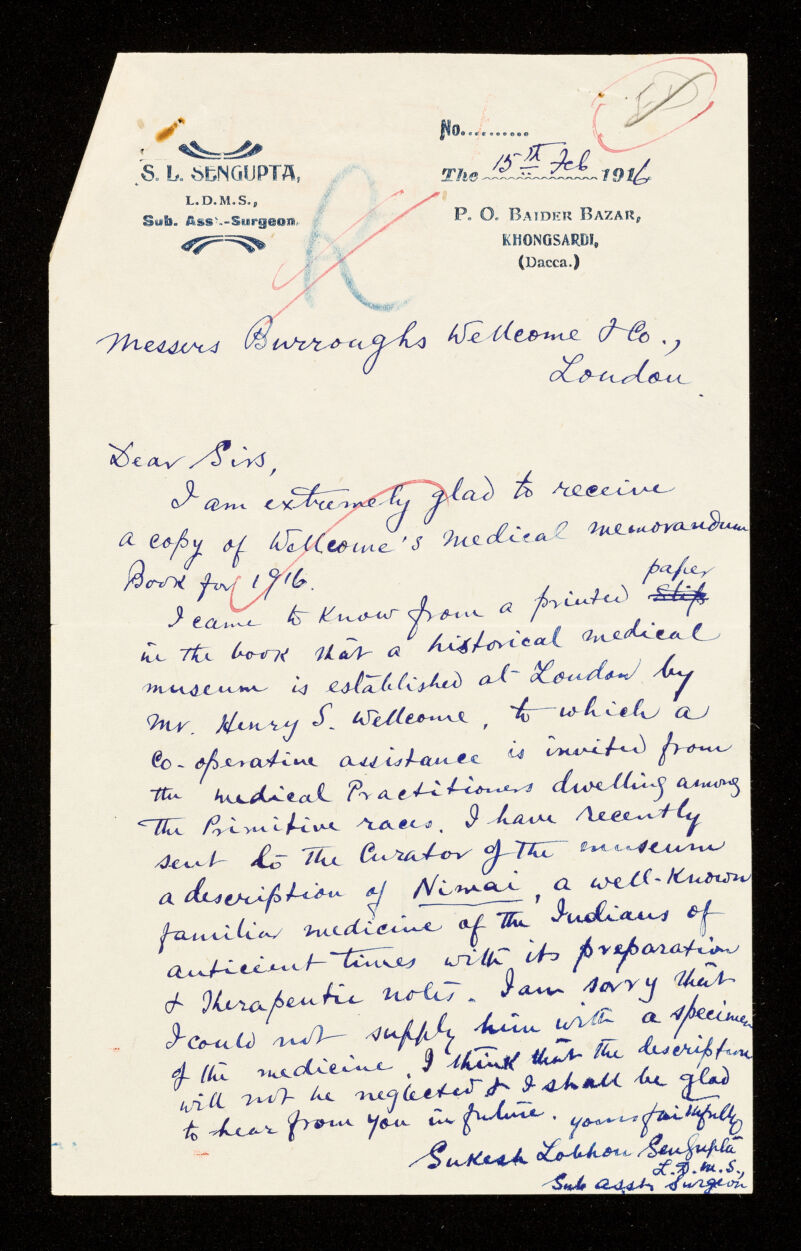 ED
No..........
S. L. SENGUPTA,
L.D.M.S.,
Sub. Ass'.-Surgeon.
The 15th Feb 1916
P. O. BAIDER BAZAR,
KHONGSARDI,
(Dacca.)
R
Messers Burroughs Wellcome & Co.,
London.
Dear Sirs,
I am extremely glad to receive
a copy of Wellcome's medical memorandum
Book for 1916.
I came to know from a printed paper
in the book that a historical medical
museum is established at London by
Mr. Henry S. Wellcome, to which a
Co-operative assistance is invited from
the medical Practitioners dwelling among
the Primitive races. I have recently
sent to the Curator of the museum
a description of Nimai, a well-known
familiar medicine of the Indians of
anticient times with its preparation
& Therapeutic notes. I am sorry that
I could not supply him with a specimen
of the medicine. I think that the description
will not be neglected & I shall be glad
to hear from you in future. yours faithfully
Sukesh Lobhon SenGupta
L.D.M.S.,
Sub asst. Surgeon